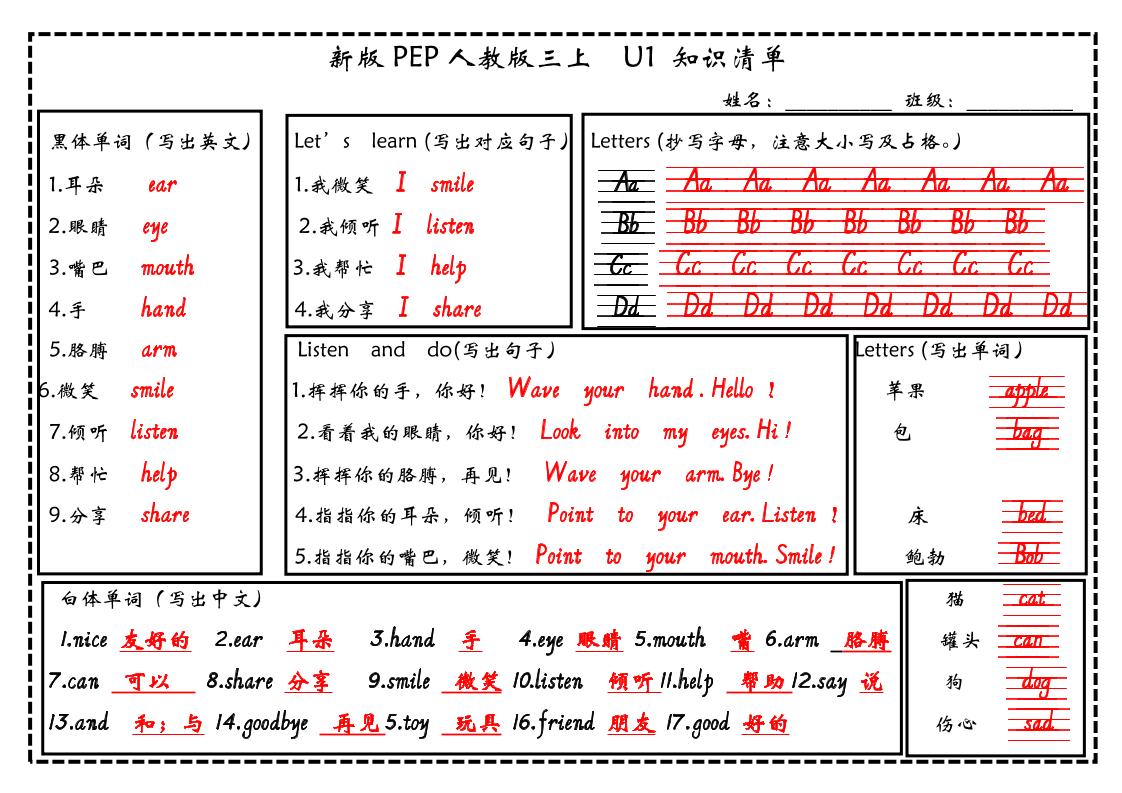 新版 PEP 人教版三上 U1 知识清单
姓名：__________ 班级：__________
黑体单词（写出英文）
1.耳朵 ear
2.眼睛 eye
3.嘴巴 mouth
4.手 hand
5.胳膊 arm
6.微笑 smile
7.倾听 listen
8.帮忙 help
9.分享 share
Let's learn (写出对应句子)
1.我微笑 I smile
2.我倾听 I listen
3.我帮忙 I help
4.我分享 I share
Letters (抄写字母，注意大小写及占格。)
Aa Aa Aa Aa Aa Aa Aa Aa
Bb Bb Bb Bb Bb Bb Bb Bb
Cc Cc Cc Cc Cc Cc Cc Cc
Dd Dd Dd Dd Dd Dd Dd Dd
Listen and do(写出句子)
1.挥挥你的手，你好！ Wave your hand. Hello !
2.看着我的眼睛，你好！ Look into my eyes. Hi !
3.挥挥你的胳膊，再见！ Wave your arm. Bye !
4.指指你的耳朵，倾听！ Point to your ear. Listen !
5.指指你的嘴巴，微笑！ Point to your mouth. Smile !
Letters (写出单词)
苹果 apple
包 bag
床 bed
鲍勃 Bob
猫 cat
罐头 can
狗 dog
伤心 sad
白体单词（写出中文）
1.nice 友好的 2.ear 耳朵 3.hand 手 4.eye 眼睛 5.mouth 嘴 6.arm _胳膊
7.can 可以 8.share 分享 9.smile 微笑 10.listen 倾听 11.help 帮助 12.say 说
13.and 和；与 14.goodbye 再见 5.toy 玩具 16.friend 朋友 17.good 好的